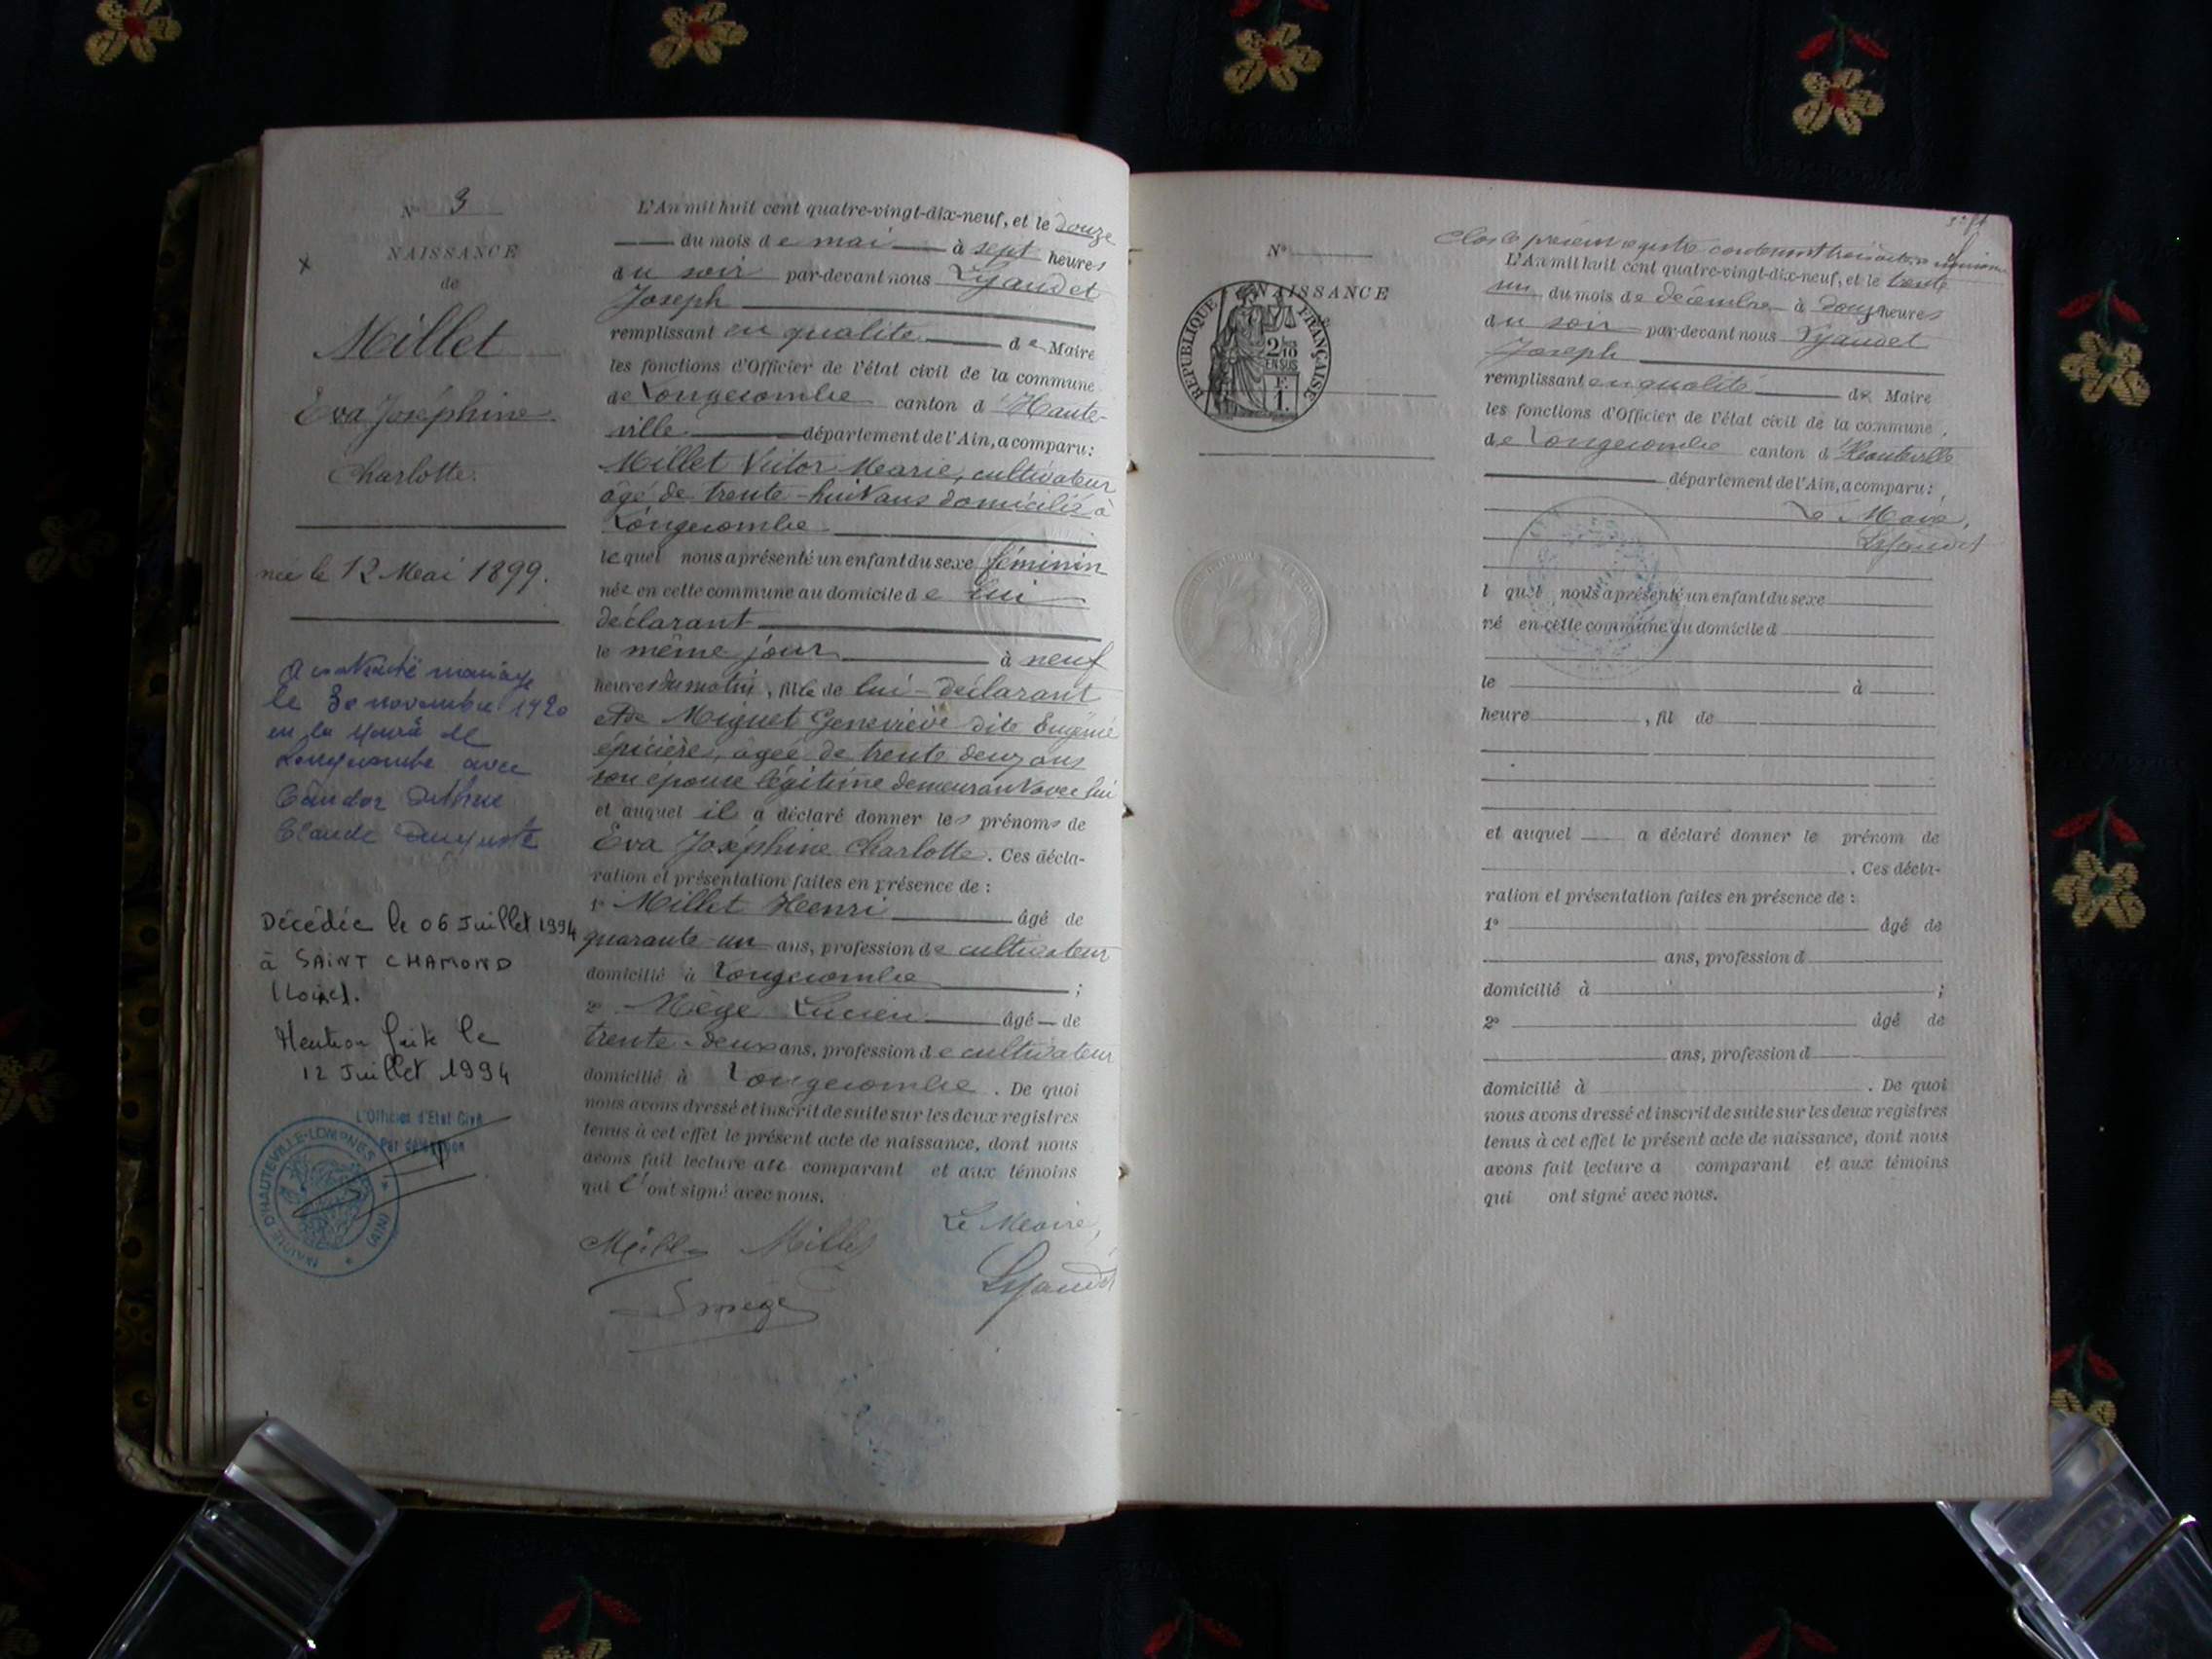 N° 3
NAISSANCE
de
Millet
Eva Joséphine
Charlotte.
née le 12 Mai 1899.
A contracté mariage
le 30 novembre 1920
en la Mairie de
Longecombe avec
Claude Auguste
Décédée le 06 Juillet 1994
à SAINT CHAMOND
(Loire).
Mention faite le
12 Juillet 1994
L'Officier d'Etat Civil
Par délégation
MAIRIE D'HAUTEVILLE-LOMPNES * (AIN) *
L'An mil huit cent quatre-vingt-dix-neuf, et le douze
du mois de mai à sept heures
du soir par-devant nous Lyaudet
Joseph
remplissant en qualité de Maire
les fonctions d'Officier de l'état civil de la commune
de Longecombe canton d'Haute-
ville département de l'Ain, a comparu:
Millet Victor Marie, cultivateur
âgé de trente-huit ans domicilié à
Longecombe
lequel nous a présenté un enfant du sexe féminin
née en cette commune au domicile de lui
déclarant
le même jour à neuf
heures du matin, fille de lui-déclarant
et de Miguet Geneviève dite Eugénie
épicière, âgée de trente deux ans
son épouse légitime demeurant avec lui
et auquel il a déclaré donner les prénoms de
Eva Joséphine Charlotte. Ces décla-
ration et présentation faites en présence de:
1° Millet Henri âgé de
quarante-un ans, profession de cultivateur
domicilié à Longecombe ;
2° Mège Lucien âgé de
trente-deux ans, profession de cultivateur
domicilié à Longecombe. De quoi
nous avons dressé et inscrit de suite sur les deux registres
tenus à cet effet le présent acte de naissance, dont nous
avons fait lecture au comparant et aux témoins
qui l'ont signé avec nous.
Millet Le Maire,
Lyaudet
Smège
3e ft
N°
NAISSANCE
REPUBLIQUE FRANÇAISE
2/10
EN SUS
1F.
Clos le présent registre contenant trois actes
L'An mil huit cent quatre-vingt-dix-neuf, et le trente
un du mois de décembre à douze heures
du soir par-devant nous Lyaudet
Joseph
remplissant en qualité de Maire
les fonctions d'Officier de l'état civil de la commune
de Longecombe canton d'Hauteville
département de l'Ain, a comparu:
Le Maire,
Lyaudet
l quel nous a présenté un enfant du sexe
né en cette commune au domicile d
le à
heure , fil de
et auquel a déclaré donner le prénom de
. Ces décla-
ration et présentation faites en présence de:
1° âgé de
ans, profession d
domicilié à ;
2° âgé de
ans, profession d
domicilié à . De quoi
nous avons dressé et inscrit de suite sur les deux registres
tenus à cet effet le présent acte de naissance, dont nous
avons fait lecture a comparant et aux témoins
qui ont signé avec nous.